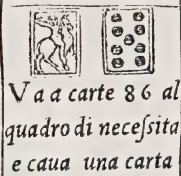 Va a carte 86 al
quadro di neceſsita
e caua una carta